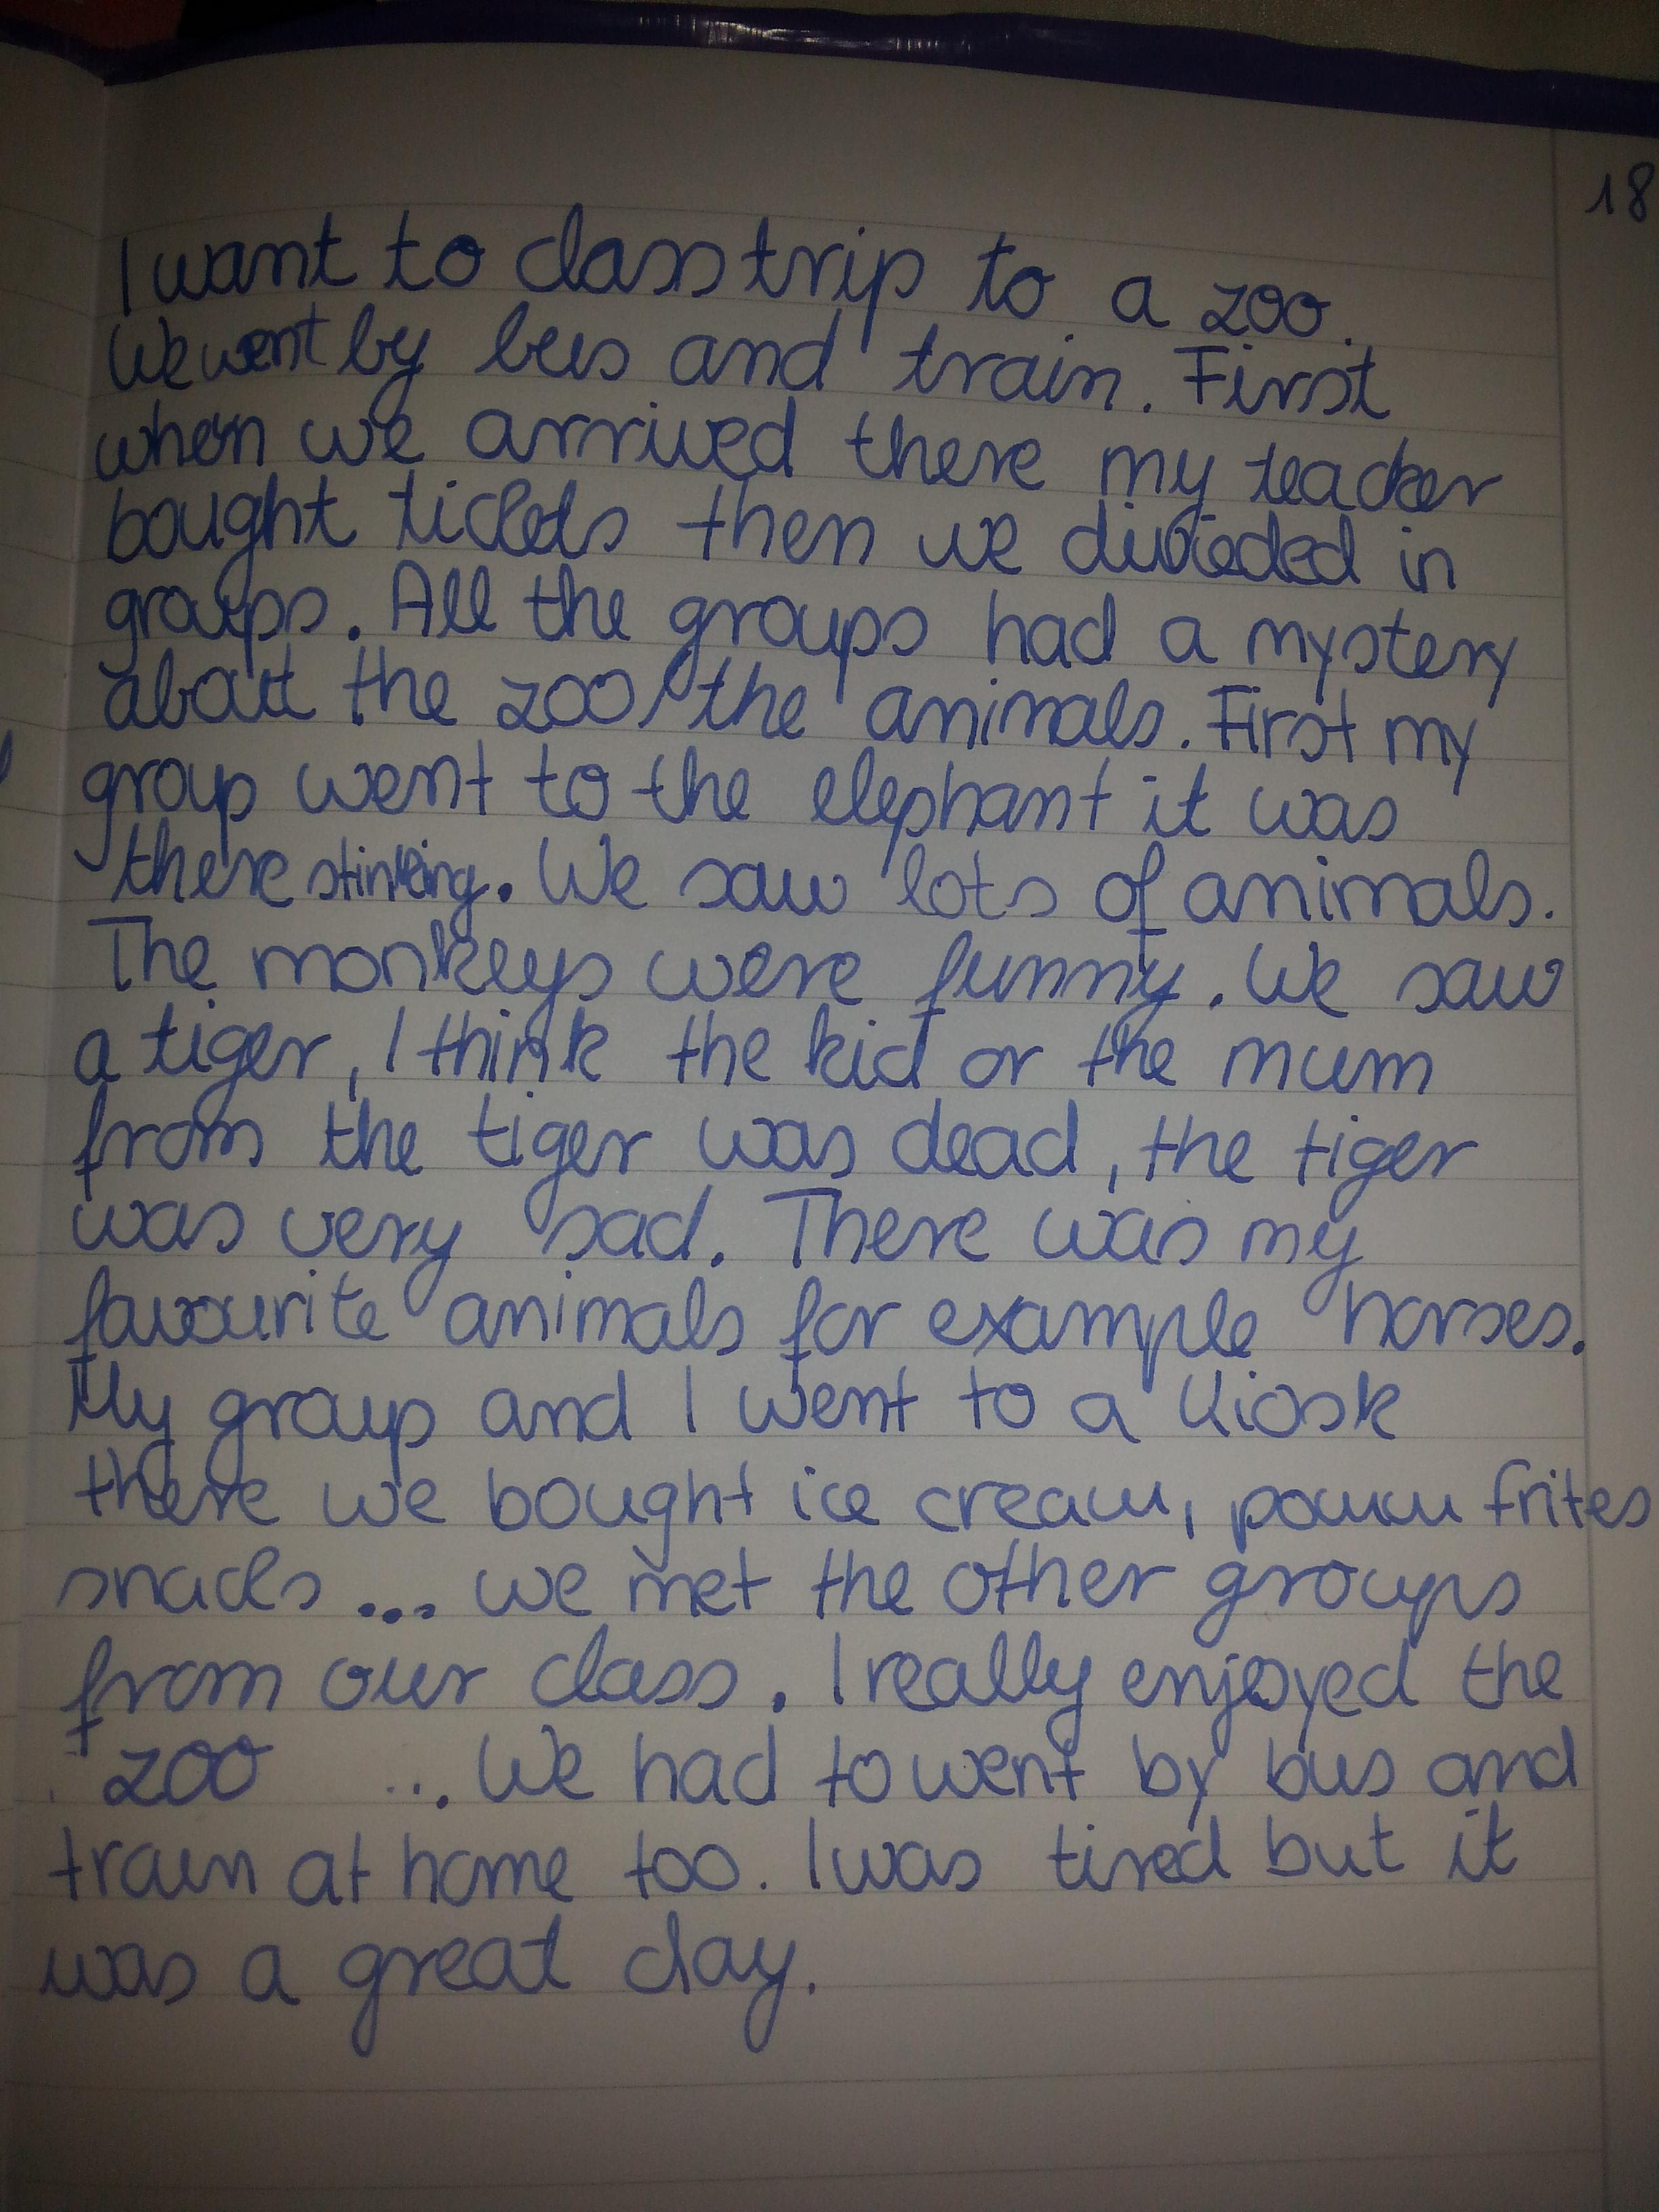 18
I want to class trip to a zoo.
We went by bus and train. First
when we arrived there my teacher
bought tickets then we divided in
groups. All the groups had a mystery
about the zoo/the animals. First my
group went to the elephant it was
there stinking. We saw lots of animals.
The monkeys were funny. We saw
a tiger, I think the kid or the mum
from the tiger was dead, the tiger
was very sad. There was my
favourite animals for example horses.
My group and I went to a Kiosk
there we bought ice cream, pomm frites
snacks ... we met the other groups
from our class. I really enjoyed the
zoo ... We had to went by bus and
train at home too. I was tired but it
was a great day.